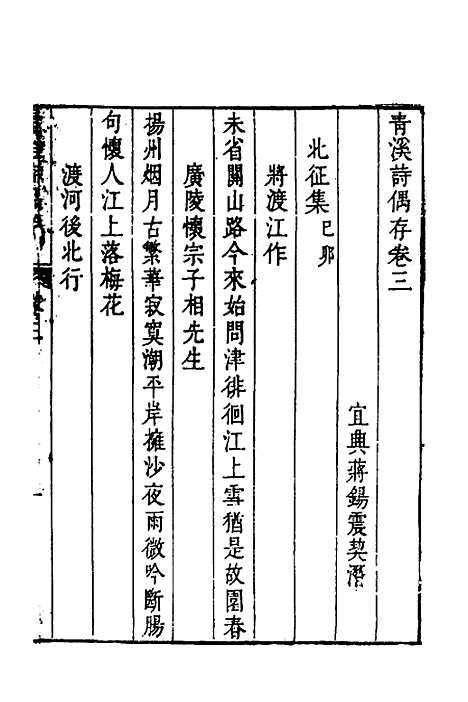 青溪詩偶存卷三
宜興蔣錫震契潛
北征集己卯
將渡江作
未省關山路今來始問津徘徊江上雪猶是故園春
廣陵懷宗子相先生
揚州烟月古繁華寂寞潮平岸擁沙夜雨微吟斷腸
句懷人江上落梅花
渡河後北行